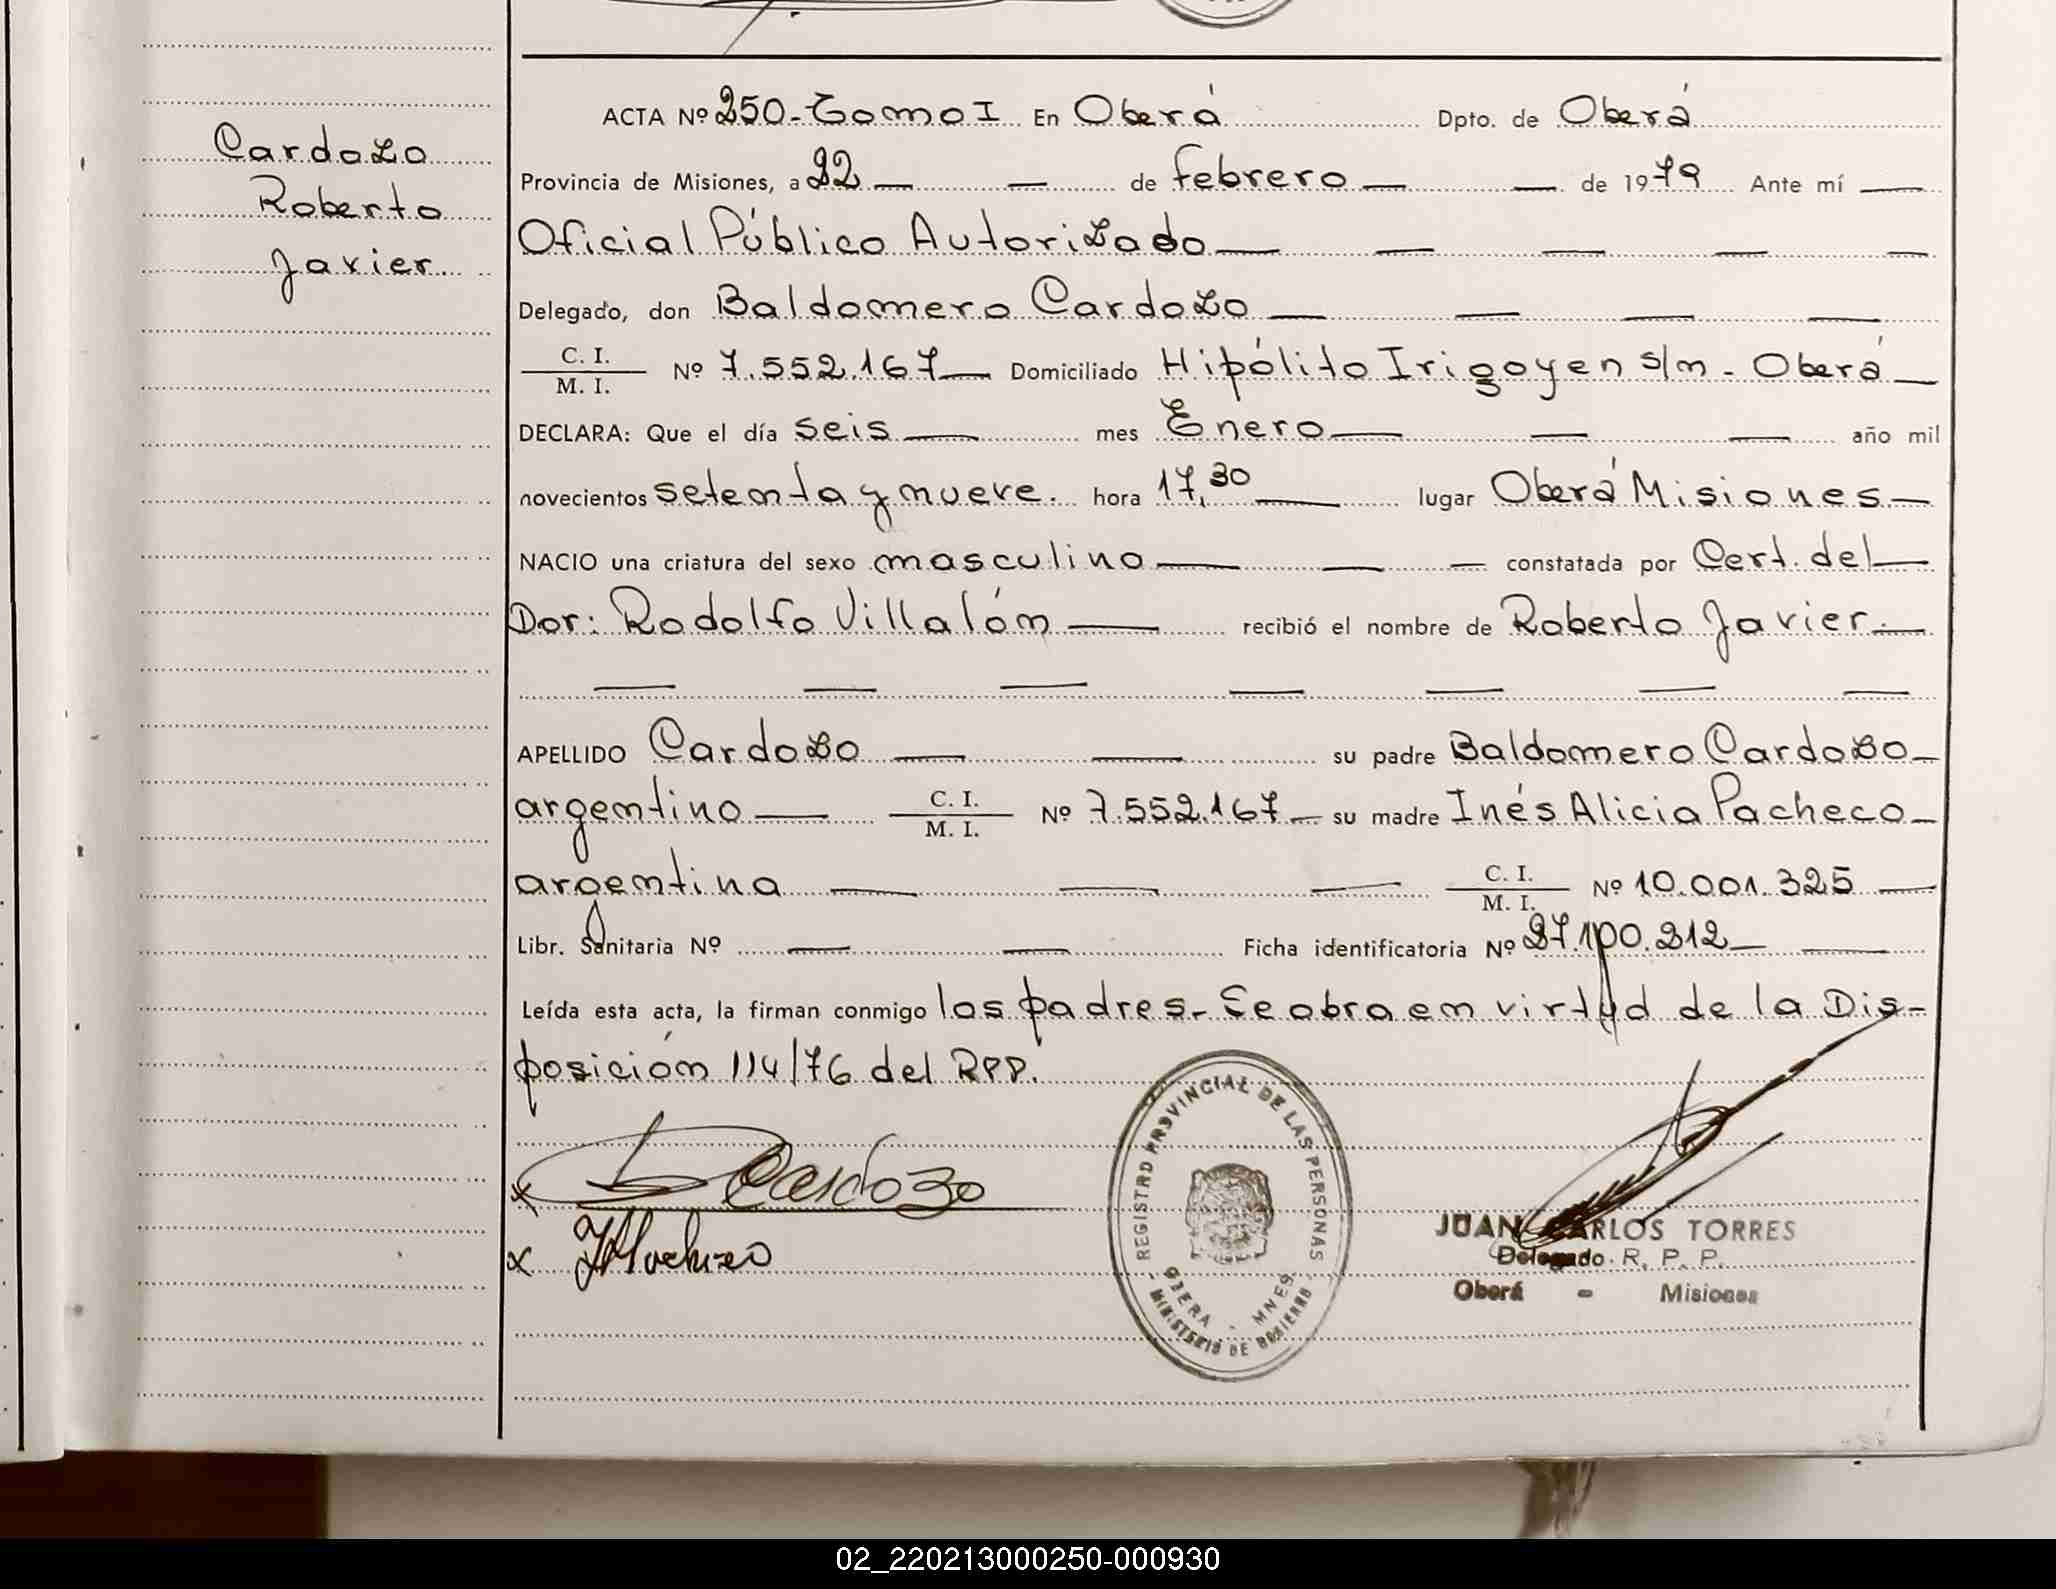 Cardozo
Roberto
Javier
ACTA Nº 250-Tomo I En Oberá Dpto. de Oberá
Provincia de Misiones, a 22 — — de febrero — — de 1979 Ante mí —
Oficial Público Autorizado — — — — —
Delegado, don Baldomero Cardozo — — — —
C. I. / M. I. Nº 7.552.167 — Domiciliado Hipólito Irigoyen s/n - Oberá —
DECLARA: Que el día seis — mes Enero — — — año mil
novecientos setenta y nueve. hora 17,30 — lugar Oberá Misiones —
NACIO una criatura del sexo masculino — — — constatada por Cert. del —
Dor: Rodolfo Villalón — recibió el nombre de Roberto Javier. —
— — — — — — —
APELLIDO Cardozo — — su padre Baldomero Cardozo —
argentino — C. I. / M. I. Nº 7.552.167 — su madre Inés Alicia Pacheco —
argentina — — — C. I. / M. I. Nº 10.001.325 —
Libr. Sanitaria Nº — — Ficha identificatoria Nº 27.100.212 — —
Leída esta acta, la firman conmigo los padres - Se obra en virtud de la Dis-
posición 114/76 del RPP.
x Cardozo
x
REGISTRO PROVINCIAL DE LAS PERSONAS
OBERA - MNES
- MINISTERIO DE GOBIERNO -
JUAN CARLOS TORRES
Delegado R. P. P.
Oberá - Misiones
02_220213000250-000930